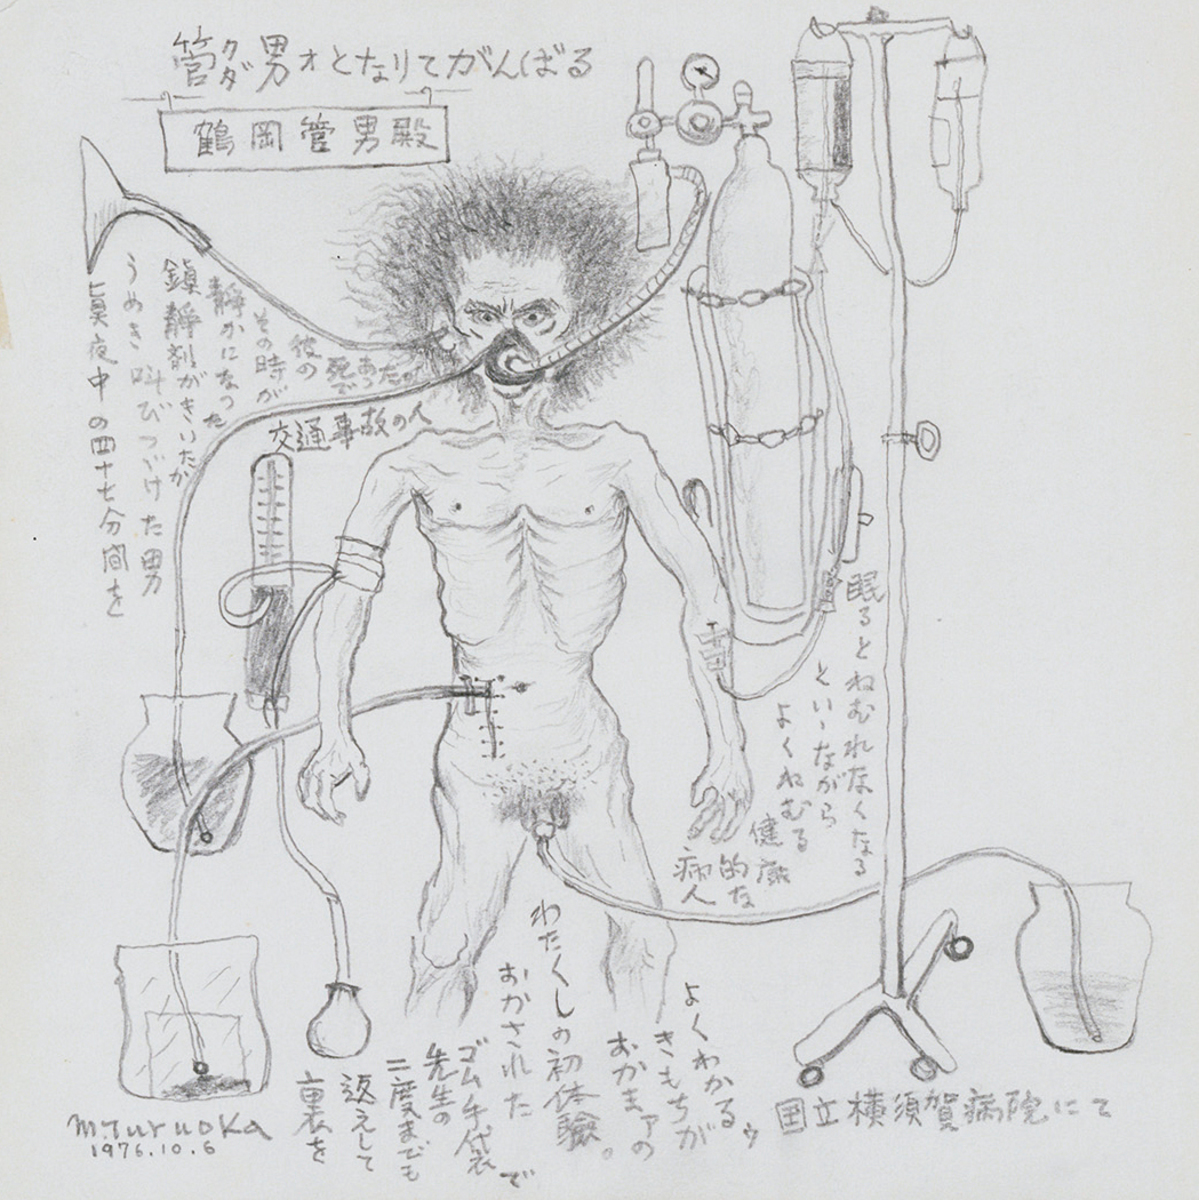 管クダ男オとなりてがんばる
鶴岡管男殿
眞夜中の四十七分間を
うめき叫びつづけた男
鎭靜剤がきいたか
靜かになった
その時が
彼の
死で
あった
交通事故の人
眠るとねむれなくなる
といいながら
よくねむる
健康
的な
病人
裏を
返えして
二度までも
先生の
ゴム手袋で
おかされた
わたくしの初体験。
おかまァの
きもちが
よくわかるゥ
国立横須賀病院にて
M.Turuoka
1976.10.6